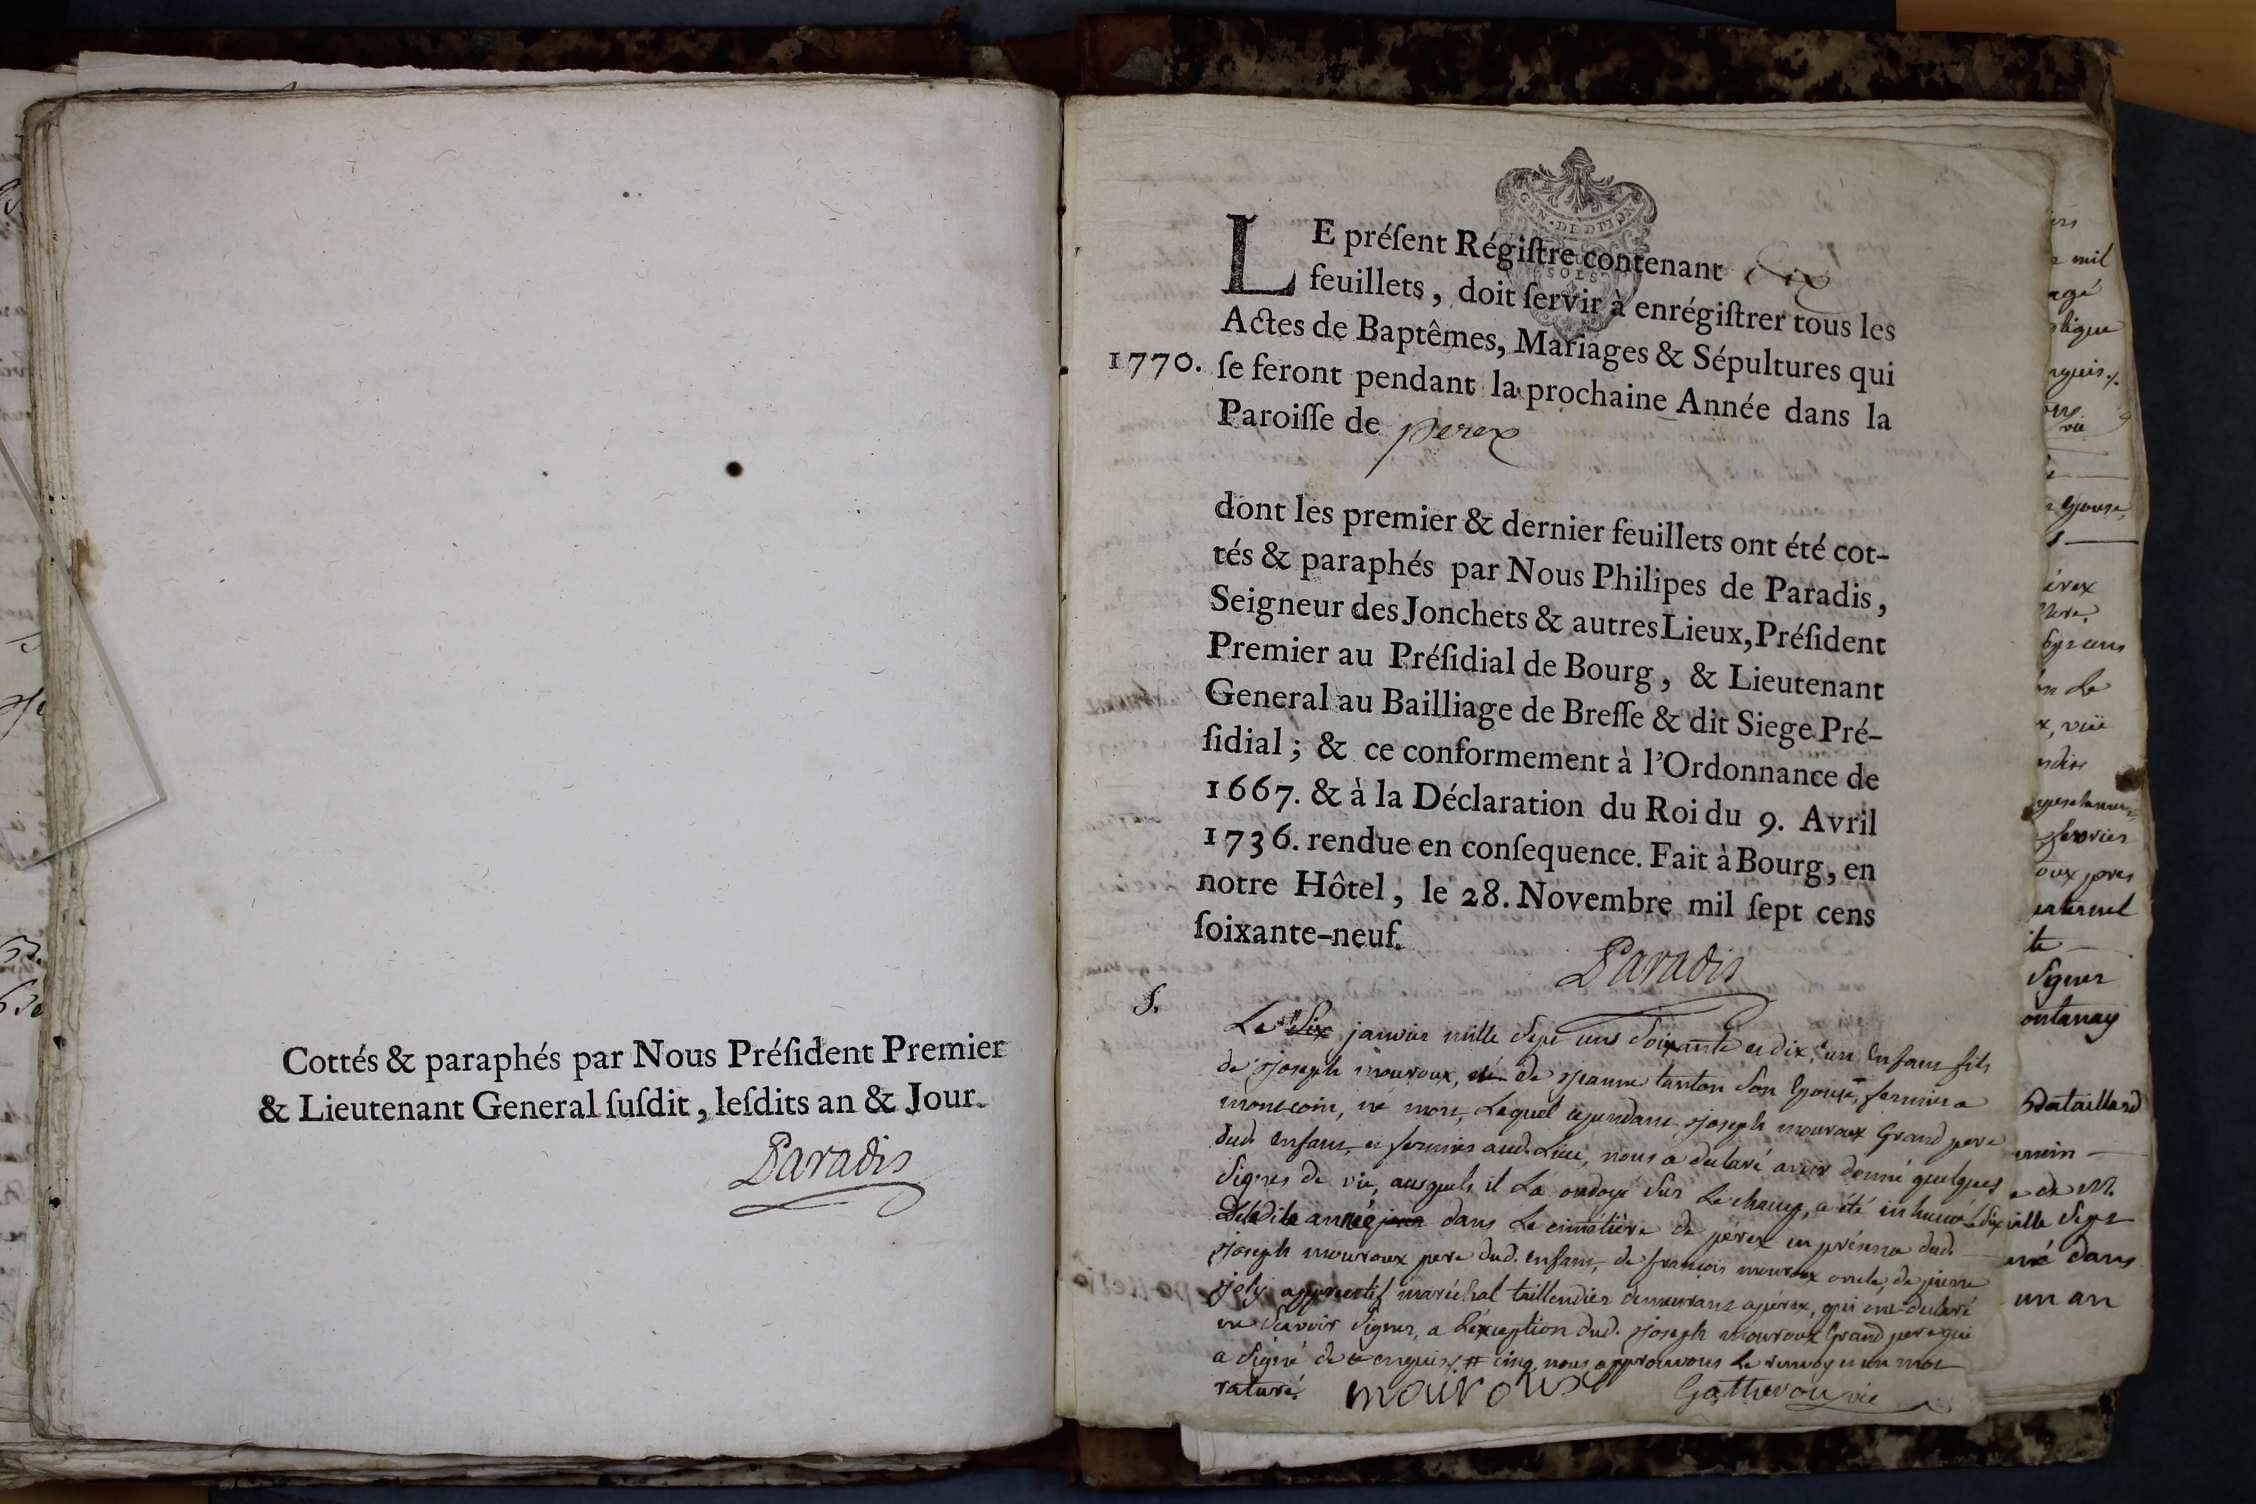 Cottés & paraphés par Nous Préſident Premier
& Lieutenant General ſuſdit, leſdits an & Jour.
Paradis
GEN. DE DIJON
SOLS
LE préſent Régiſtre contenant dix
feuillets, doit ſervir à enrégiſtrer tous les
Actes de Baptêmes, Mariages & Sépultures qui
1770. ſe feront pendant la prochaine Année dans la
Paroiſſe de perex
dont les premier & dernier feuillets ont été cot-
tés & paraphés par Nous Philipes de Paradis,
Seigneur des Jonchets & autres Lieux, Préſident
Premier au Préſidial de Bourg, & Lieutenant
General au Bailliage de Breſſe & dit Siege Pré-
ſidial; & ce conformement à l'Ordonnance de
1667. & à la Déclaration du Roi du 9. Avril
1736. rendue en conſequence. Fait à Bourg, en
notre Hôtel, le 28. Novembre mil ſept cens
ſoixante-neuf.
Paradis
S.
Le # Six janvier mille Sept cens Soixante et dix, un Enfant fils
de joseph mouroux, et de jeanne tanton Son Epouse, fermier a
montcoin, né mort, Lequel cependant joseph mouroux Grand pere
dud. Enfant, et fermier aud. Lieu, nous a declaré avoir donné quelques
Signes de vie, ausquels il L'a ondoyé Sur Le champ, a été inhumé Le Six
deladite année jour dans Le cimetière de pérex en présence dud.
joseph mouroux pere dud. enfant, de françois mouroux oncle, de pierre
joly apprentif maréchal taillendier demeurant a pérex, qui ont declaré
ne Scavoir Signer, a L'exception dud. joseph mouroux Grand pere qui
a Signé de ce enquis. # cinq nous approuvons Le renvoy et un mot
raturé. mouroux Gatheron vic